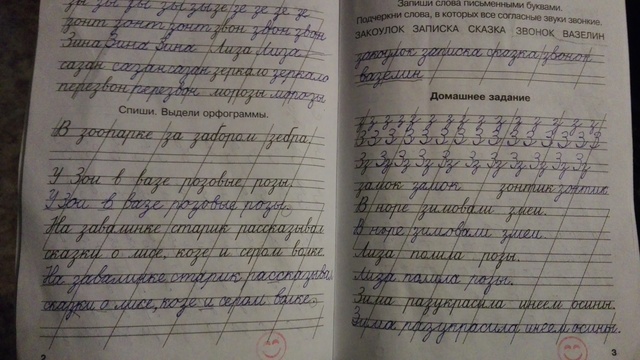 зы зы зы зы зызе зе зе зе
зонт зонт зонт звон звон звон
Зина Зина Зина Лиза Лиза
сазан сазан сазан зеркало зеркало
перезвон перезвон морозы морозы
Спиши. Выдели орфограммы.
В зоопарке за забором зебра.
У Зои в вазе розовые розы.
У Зои в вазе розовые розы.
На завалинке старик рассказывал
сказки о лисе, козе и сером волке
На завалинке старик рассказывал
сказки о лисе, козе и сером волке.
2
Запиши слова письменными буквами.
Подчеркни слова, в которых все согласные звуки звонкие.
ЗАКОУЛОК ЗАПИСКА СКАЗКА ЗВОНОК ВАЗЕЛИН
закоулок записка сказка звонок
вазелин
Домашнее задание
з з з з з з з з з з з з з
З З З З З З З З З З З З З
Зз Зз Зз Зз Зз Зз Зз Зз Зз Зз
замок замок зонтик зонтик
В норе зимовали змеи.
В норе зимовали змеи.
Лиза полила розы.
Лиза полила розы.
Зима разукрасила инеем осины.
Зима разукрасила инеем осины.
3